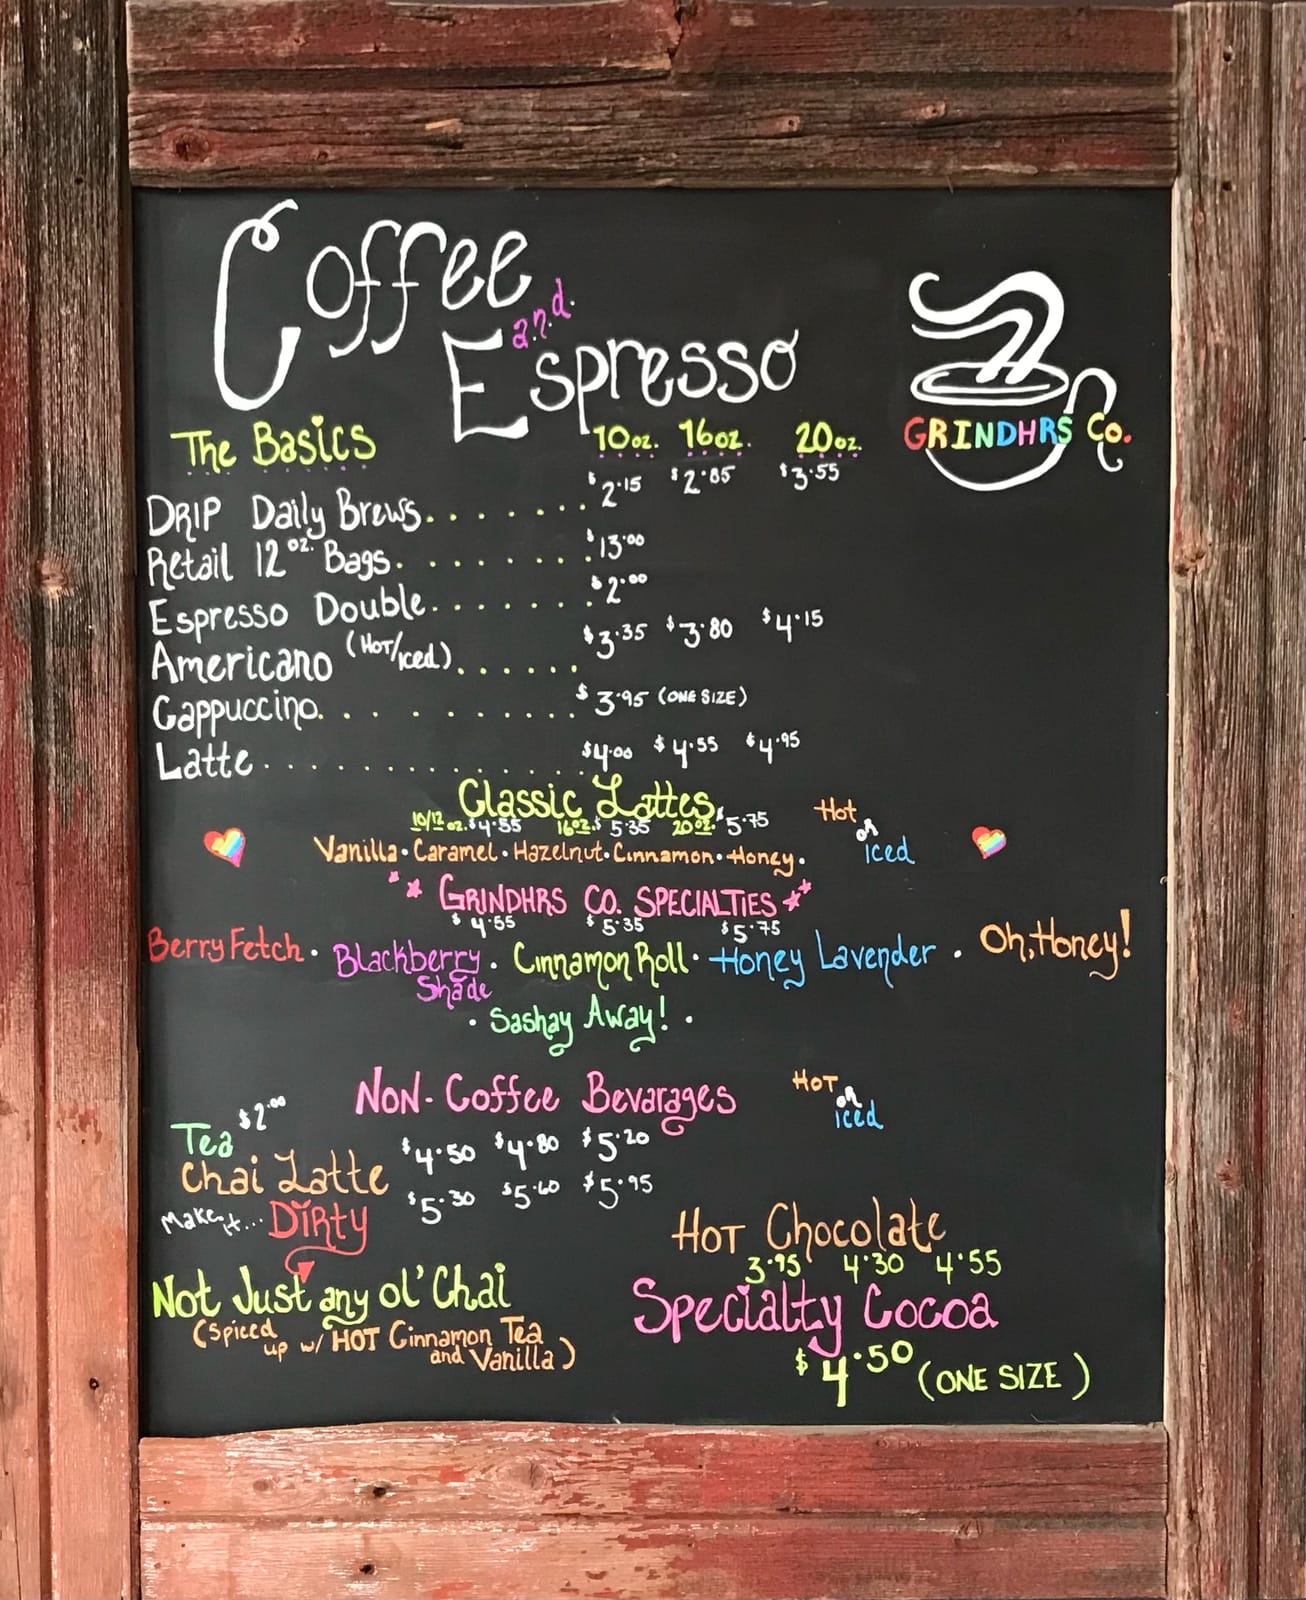 Coffee
and
Espresso
GRINDHRS Co.
The Basics 10oz. 16oz. 20oz.
DRIP Daily Brews........ $2.15 $2.85 $3.55
Retail 12oz. Bags......... $13.00
Espresso Double........ $2.00
Americano (Hot/iced)...... $3.35 $3.80 $4.15
Cappuccino........... $3.95 (ONE SIZE)
Latte............. $4.00 $4.55 $4.95
Classic Lattes
10/12 oz. $4.55 16oz. $5.35 20oz. $5.75
Hot or iced
Vanilla • Caramel • Hazelnut • Cinnamon • Honey •
GRINDHRS CO. SPECIALTIES
$4.55 $5.35 $5.75
Berry Fetch • Blackberry Shade • Cinnamon Roll • Honey Lavender • Oh, Honey!
• Sashay Away! •
Non-Coffee Bevarages
HOT or iced
Tea $2.00
Chai Latte $4.50 $4.80 $5.20
Make it... Dirty $5.30 $5.60 $5.95
Not Just any ol' Chai
(Spiced up w/ HOT Cinnamon Tea and Vanilla)
HOT Chocolate
3.95 4.30 4.55
Specialty Cocoa
$4.50 (ONE SIZE)